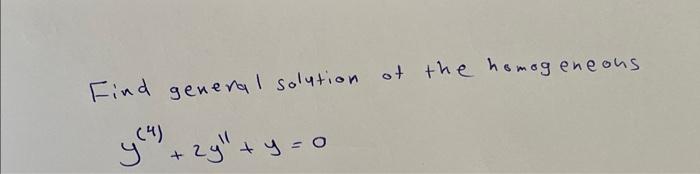 Find general solution of the homogeneous
y⁽⁴⁾ + 2y'' + y = 0